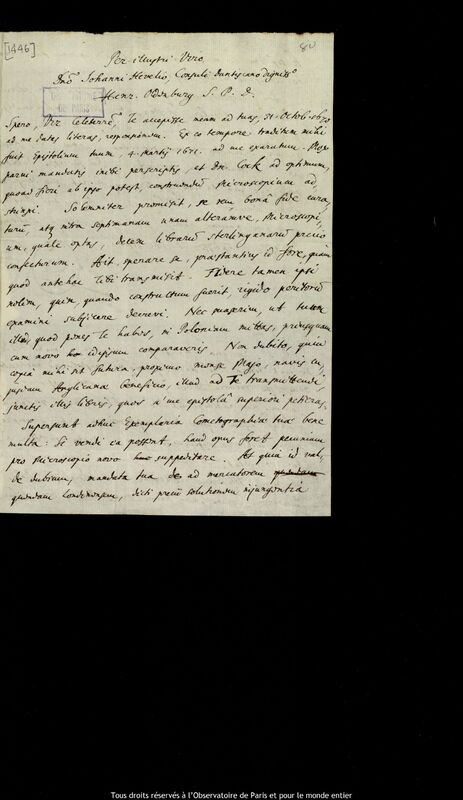 [1446]
80
Per-illustri Viro,
Dno Johanni Hevelio, Consuli Dantiscano Dignisso
Henr. Oldenburg S. P. D.
DE PARIS
Spero, Vir Celeberre, Te accepisse meam ad tuas, 31. Octob. 1670
ad me datas literas, responsionem. Ex eo tempore traditum mihi
fuit Epistolium tuum, 4. Martij 1671. ad me exaratum. Mox
parui mandatis inibi perscriptis, et Dn. Cock id optimum,
quoad fieri ab ipso potest, construendum Microscopium ad
strinxi. Solemniter promisit, se rem bonâ fide cura
turum, atque intra septimanam unam alteramve, Microscopi,
um, quale optas, decem librarum sterlingarum precio
confecturum. Ait, sperare se, praestantius id fore, quam
quod antehac tibi transmisit. Fidere tamen ipsi
nolim, quin, quando constructum fuerit, rigido peritorum
examini subjicere decrevi. Nec suaserim, ut tuum
illud, quod penes te habes, in Poloniam mittas, priusquam
cum novo hoc idipsum comparaveris. Non dubito, quin
copia mihi sit futura, proximo mense Majo, navis cu,
jusdam Anglicana beneficio, illud ad Te transmittendi,
junctis illis libris, quos a me epistolâ superiori petieras.
Supersunt adhuc Exemplaria Cometographiae tuae bene
multa: Si vendi ea possent, haud opus foret pecuniam
pro Microscopio novo suppeditare. At quia id val,
de dubium, mandata tua ad mercatorem quendam
quendam Londinensem, dicti precii solutionem injungentia
Tous droits réservés à l'Observatoire de Paris et pour le monde entier